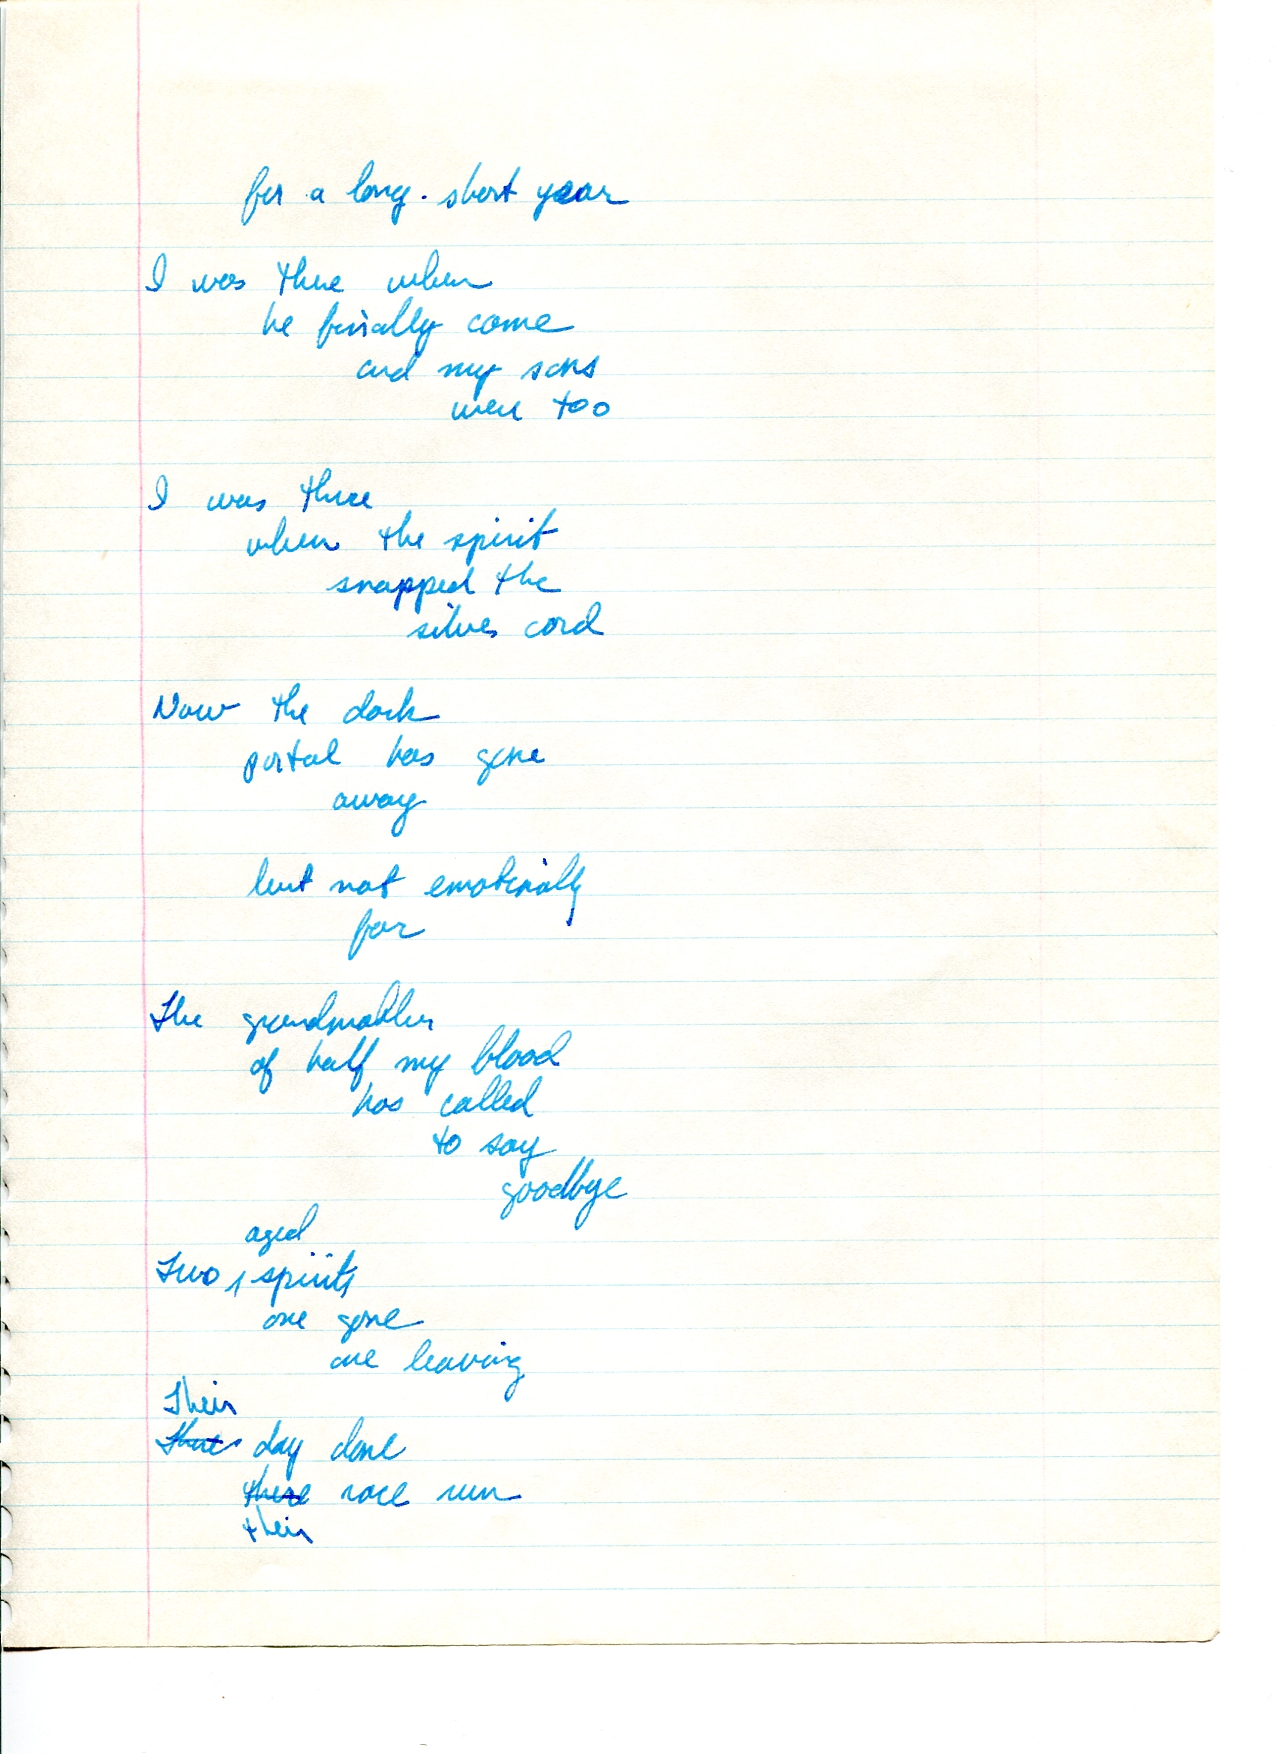 for a long. short year
I was there when
he finally come
and my sons
were too
I was there
when the spirit
snapped the
silver cord
Now the dark
portal has gone
away
but not emotinally
far
The grandmother
of half my blood
has called
to say
goodbye
aged
Two spirits
one gone
one leaving
Their
day done
there race run
their